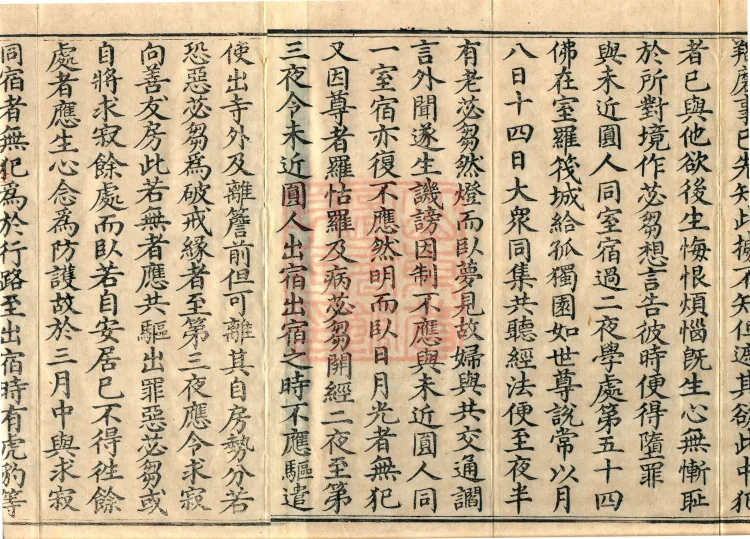 羯磨事已先知此據不知但遮其欲此中犯
者已與他欲後生悔恨煩惱既生心無慚恥
於所對境作苾芻想言告彼時便得墮罪
與未近圓人同室宿過二夜學處第五十四
佛在室羅筏城給孤獨園如世尊說常以月
八日十四日大衆同集共聽經法便至夜半
有老苾芻然燈而臥夢見故婦與共交通讇
言外聞遂生譏謗因制不應與未近圓人同
一室宿亦復不應然明而臥日月光者無犯
又因尊者羅怙羅及病苾芻開經二夜至第
三夜令未近圓人出宿出宿之時不應驅遣
使出寺外及離簷前但可離其自房勢分若
恐惡苾芻為破戒緣者至第三夜應令求寂
向善友房此若無者應共驅出罪惡苾芻或
自將求寂餘處而臥若自安居已不得往餘
處者應生心念為防護故於三月中與求寂
同宿者無犯為於行路至出宿時有虎豹等